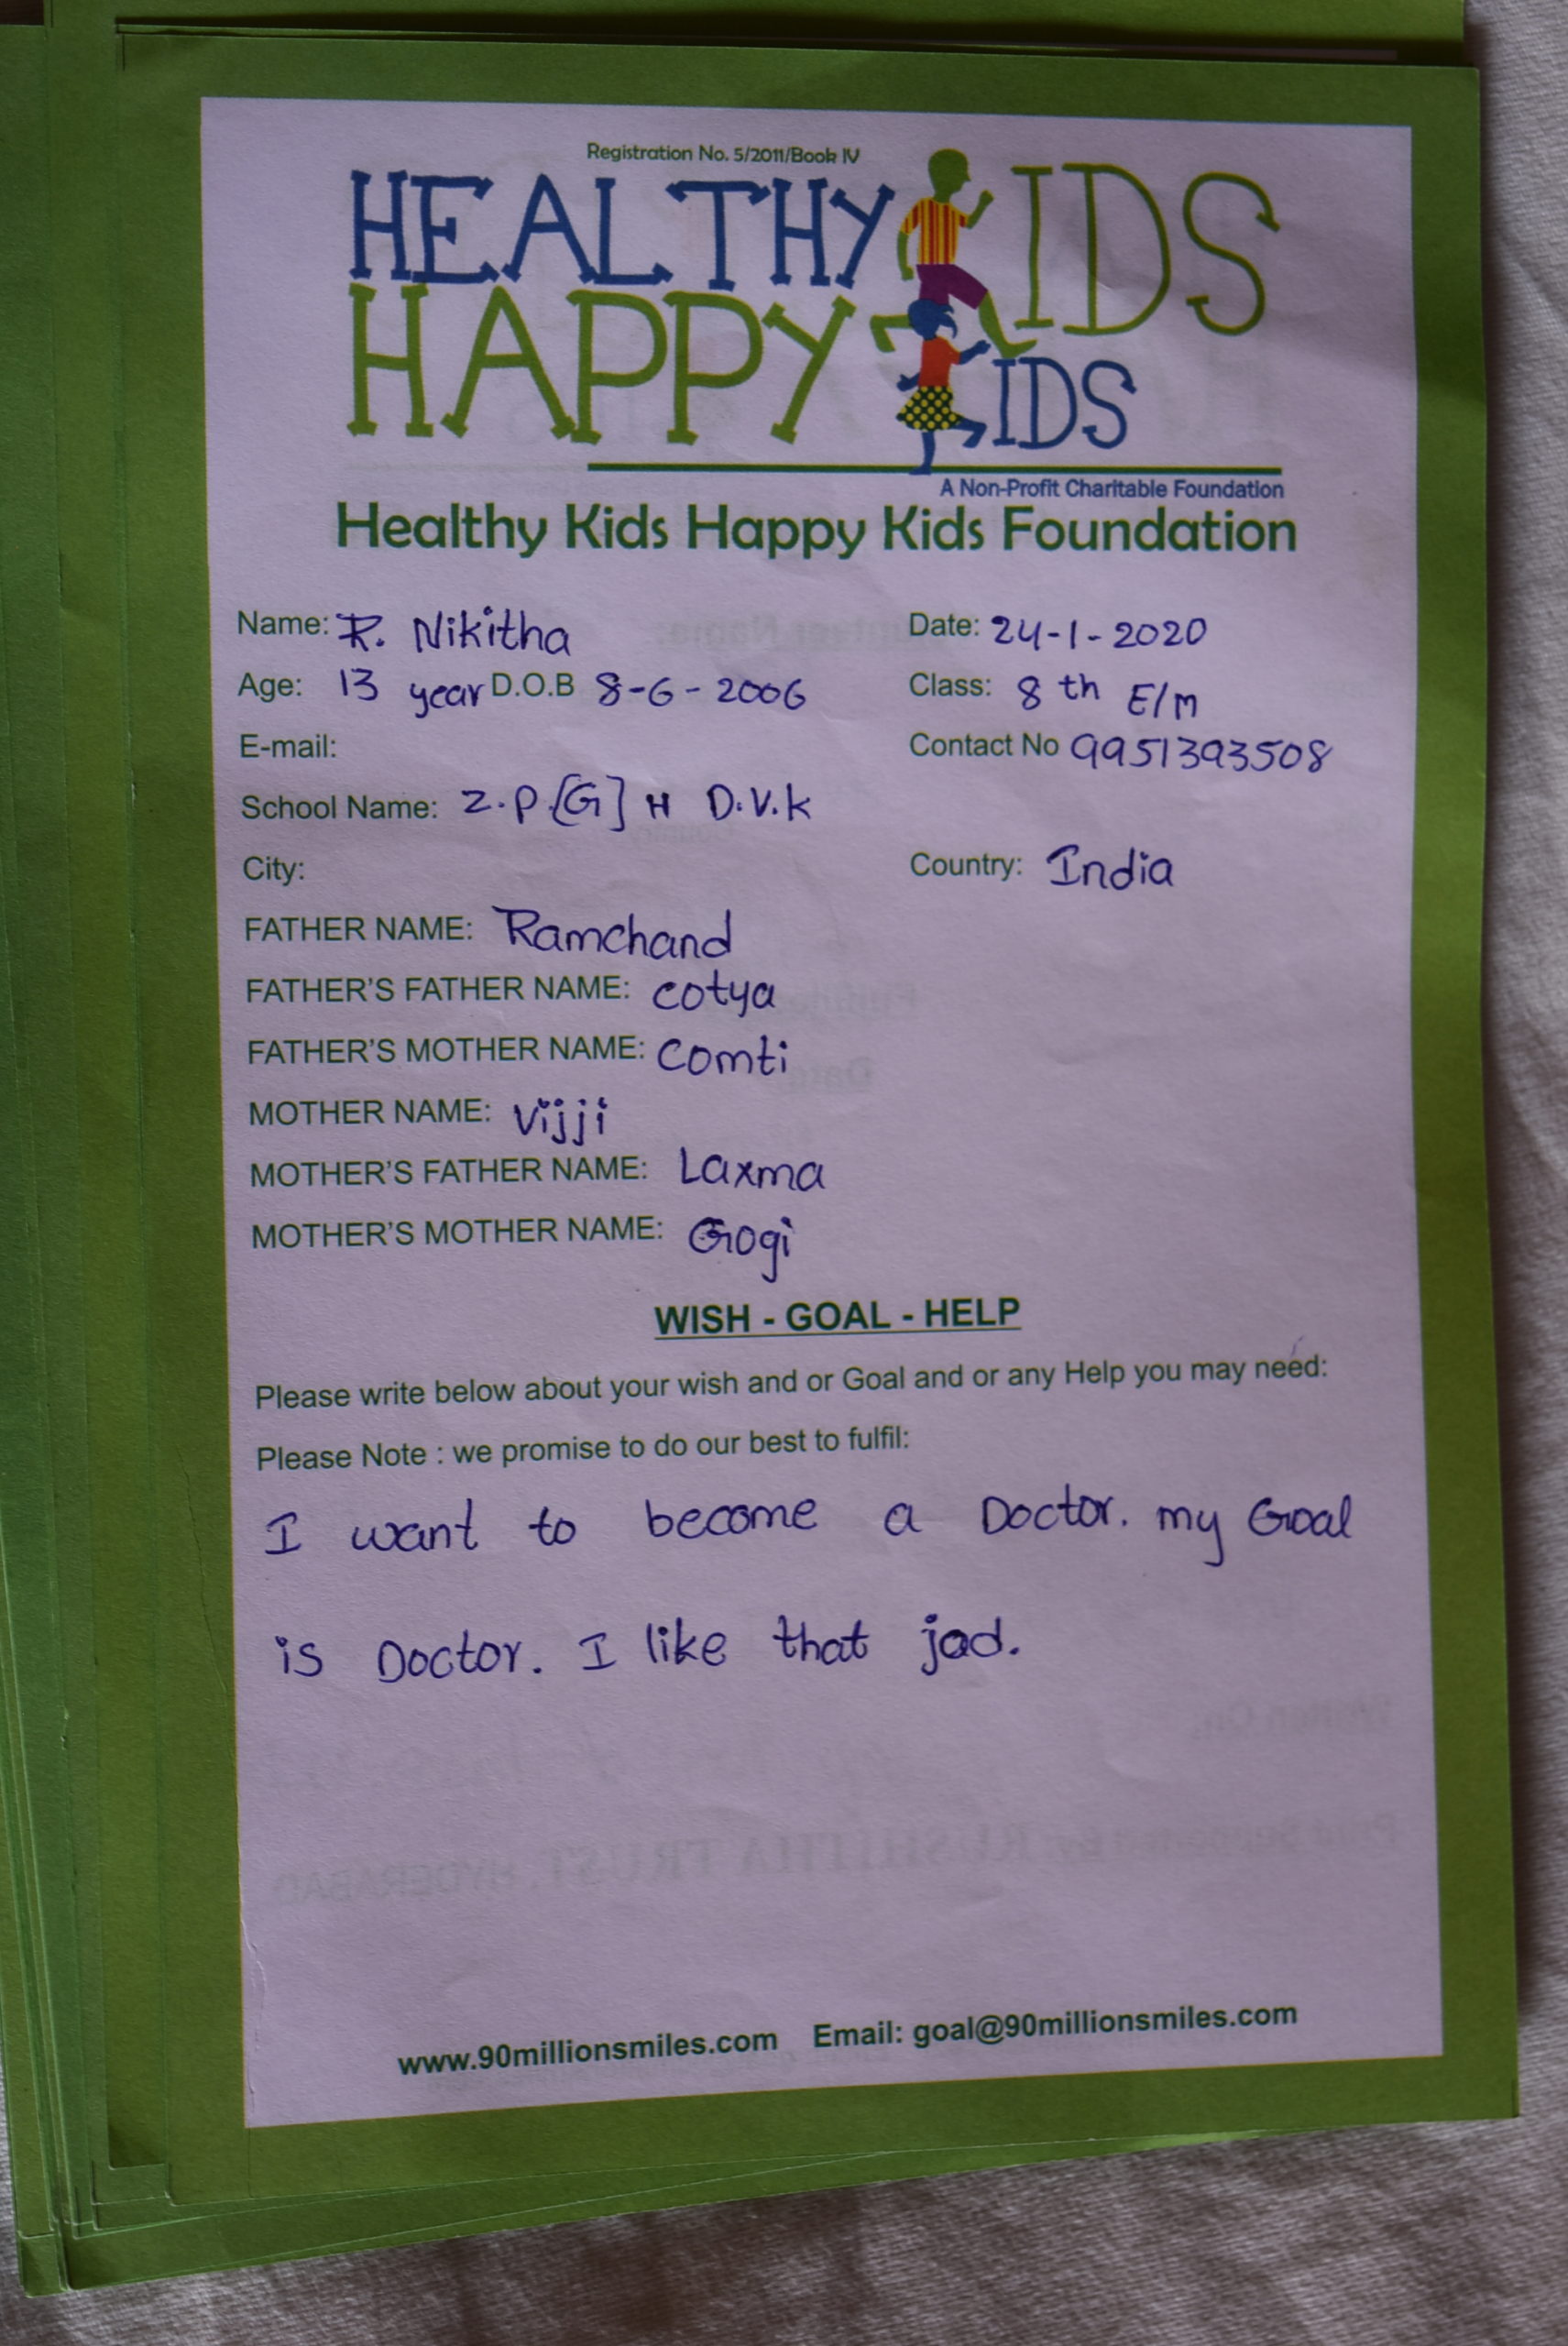 Registration No. 5/2011/Book IV
HEALTHY KIDS
HAPPY KIDS
A Non-Profit Charitable Foundation
Healthy Kids Happy Kids Foundation
Name: R. Nikitha Date: 24-1-2020
Age: 13 year D.O.B 8-6-2006 Class: 8th E/M
E-mail: Contact No 9951393508
School Name: Z.P.[G] H D.V.K
City: Country: India
FATHER NAME: Ramchand
FATHER'S FATHER NAME: cotya
FATHER'S MOTHER NAME: Comti
MOTHER NAME: Vijji
MOTHER'S FATHER NAME: Laxma
MOTHER'S MOTHER NAME: Gogi
WISH - GOAL - HELP
Please write below about your wish and or Goal and or any Help you may need:
Please Note : we promise to do our best to fulfil:
I want to become a Doctor. my Goal
is Doctor. I like that jod.
www.90millionsmiles.com Email: goal@90millionsmiles.com